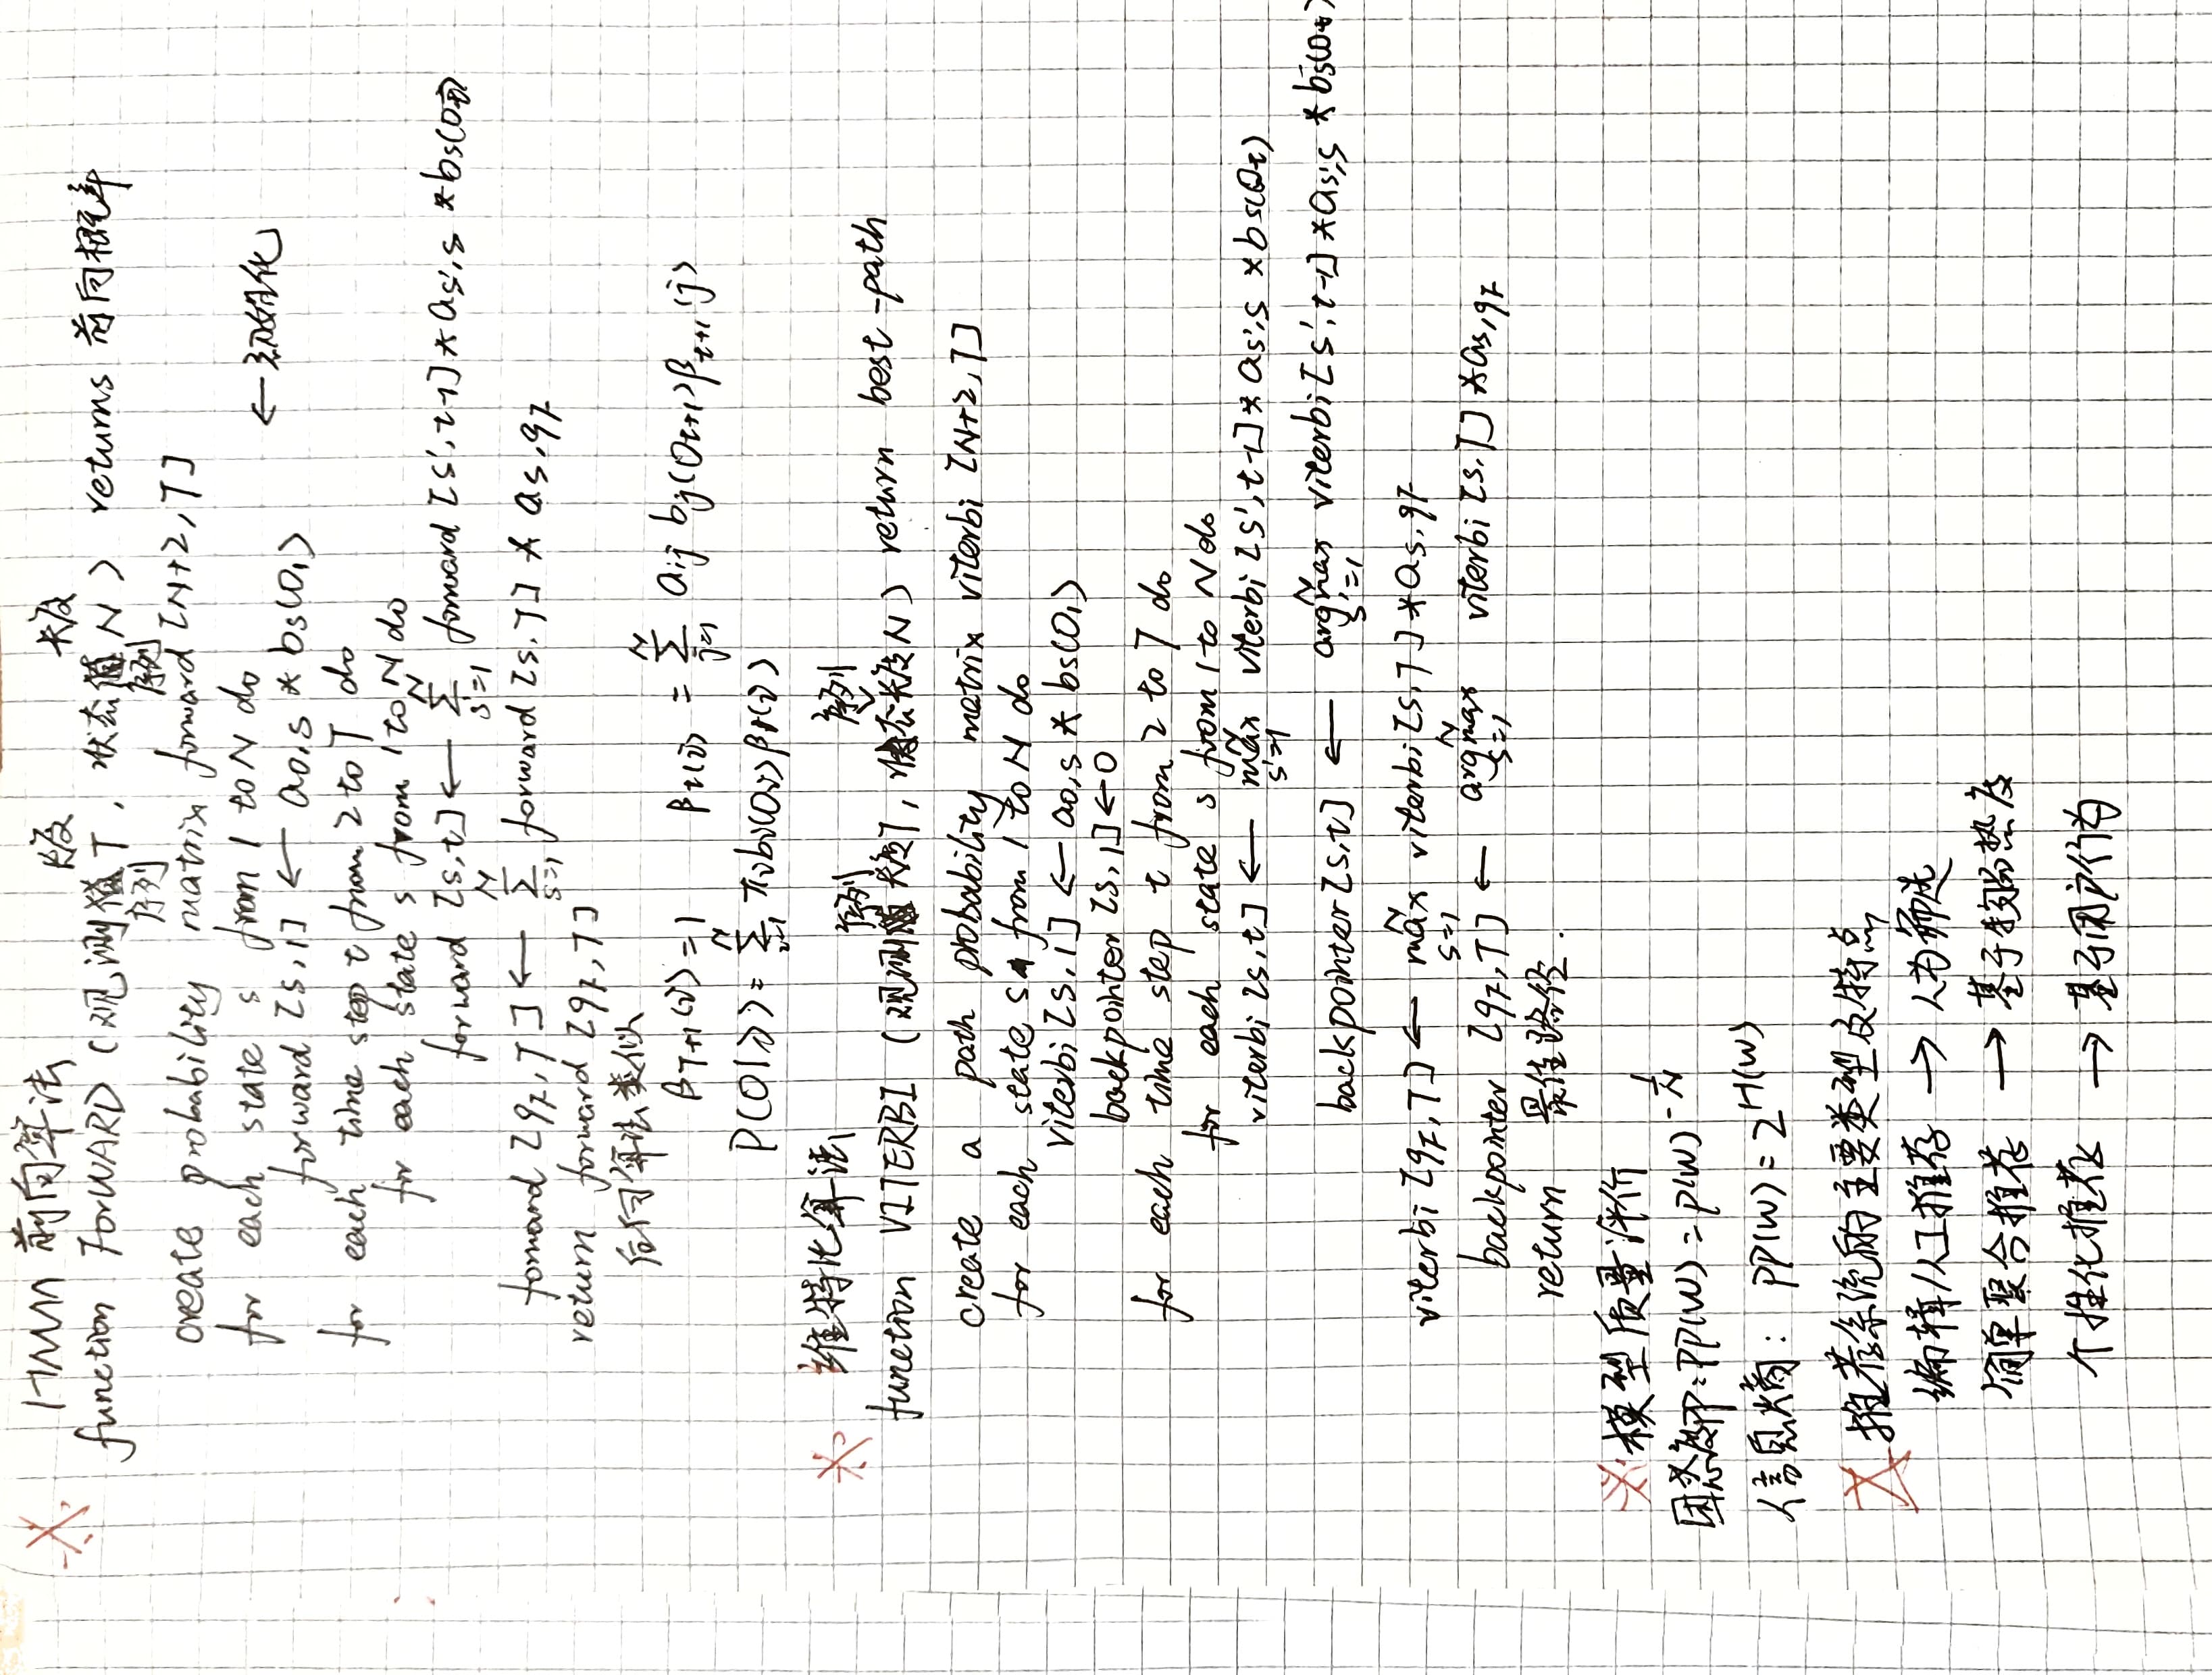 HMM 前向算法
function FORWARD (观测序列长度T, 状态序列长度N) returns 前向概率
create probability matrix forward [N+2,T]
for each state s from 1 to N do
forward [s,1] ← a0,s * bs(O1) ← 初始化
for each time step t from 2 to T do
for each state s from 1 to N do
forward [s,t] ← N∑s'=1 forward [s',t-1] * as',s * bs(Ot)
forward [qF,T] ← N∑s=1 forward [s,T] * as,qF
return forward [qF,T]
后向算法类似
βT+1(i)=1 βt(i) = N∑j=1 aij bj(Ot+1)βt+1(j)
P(O|λ)= N∑i=1 πibi(O1)β1(i)
维特比算法
function VITERBI (观测序列长度T, 状态序列长度N) return best-path
create a path probability matrix viterbi [N+2,T]
for each state s from 1 to N do
viterbi [s,1] ← a0,s * bs(O1)
backpointer [s,1] ← 0
for each time step t from 2 to T do
for each state s from 1 to N do
viterbi [s,t] ← Nmax s'=1 viterbi [s',t-1] * as',s * bs(Ot)
backpointer [s,t] ← Nargmax s'=1 viterbi [s',t-1] * as',s * bs(Ot)
viterbi [qF,T] ← Nmax s=1 viterbi [s,T] * as,qF
backpointer [qF,T] ← Nargmax s=1 viterbi [s,T] * as,qF
return 最佳路径.
模型质量评价
困惑度PP: PP(W) = P(W)^-1/N
信息熵: PP(W) = 2^H(W)
推荐系统的主要类型及特点
编辑/人工推荐 → 人为筛选
简单聚合推荐 → 基于数据热度
个性化推荐 → 基于用户行为